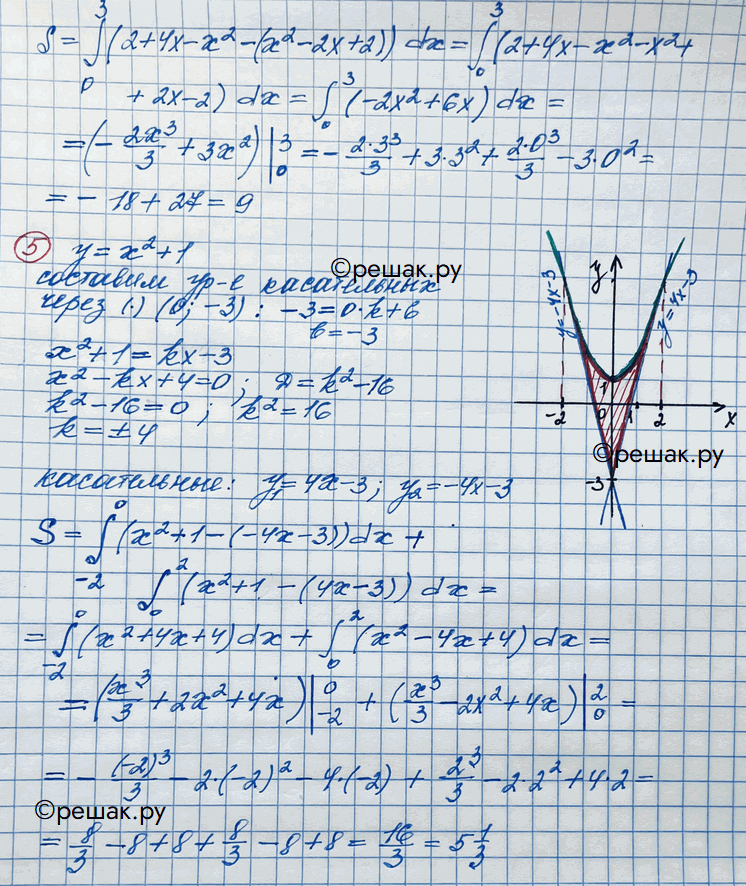 S = ∫₀³ (2+4x-x²-(x²-2x+2)) dx = ∫₀³ (2+4x-x²-x²+
+ 2x-2) dx = ∫₀³ (-2x²+6x) dx =
= (- 2x³/3 + 3x²) |₀³ = - 2·3³/3 + 3·3² + 2·0³/3 - 3·0² =
= - 18 + 27 = 9
5 y = x²+1
©решак.ру
составим ур-е касательных
через (·) (0; -3) : -3 = 0·k + b
b = -3
x²+1 = kx-3
x²-kx+4=0 ; D = k²-16
k²-16=0 ; k²=16
k = ±4
y
y=-4x-3
y=4x-3
1
-2 0 1 2 x
-3
©решак.ру
касательные: y₁ = 4x-3 ; y₂ = -4x-3
S = ∫₋₂⁰ (x²+1-(-4x-3)) dx +
∫₀² (x²+1-(4x-3)) dx =
= ∫₋₂⁰ (x²+4x+4) dx + ∫₀² (x²-4x+4) dx =
= (x³/3 + 2x² + 4x) |₋₂⁰ + (x³/3 - 2x² + 4x) |₀² =
= - (-2)³/3 - 2·(-2)² - 4·(-2) + 2³/3 - 2·2² + 4·2 =
©решак.ру
= 8/3 - 8 + 8 + 8/3 - 8 + 8 = 16/3 = 5 1/3